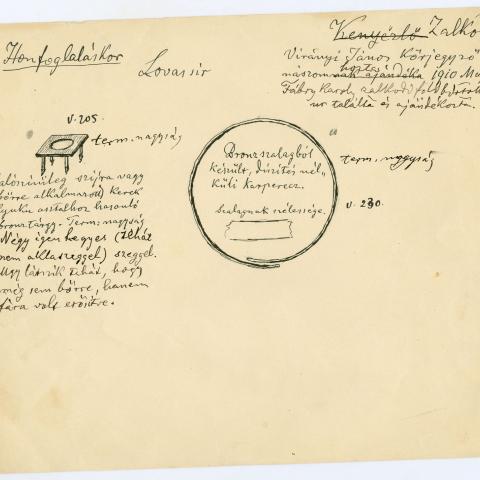 Honfoglaláskor
Lovassír
Kenyérlő Zalko
Virányi János Körjegyző
nászom ajándéka 1910
Fábry Karoly zalkodi földbirtok
ur találta és ajándékozta.
V. 205.
term. nagyság
alószinüleg szijra vagy
bőrre alkalmazott kerek
lyuku asztalhoz hasonló
bronztárgy. Term: nagyság
Négy igen hegyes (tehát
nem aklaszeggel) szeggel.
Ugy látszik tehát, hogy
még sem bőrre, hanem
fára volt erősitve.
Bronzszalagból
készült, diszités nél-
küli karperecz.
Szalagnak szélessége.
term. nagyság
V. 230.